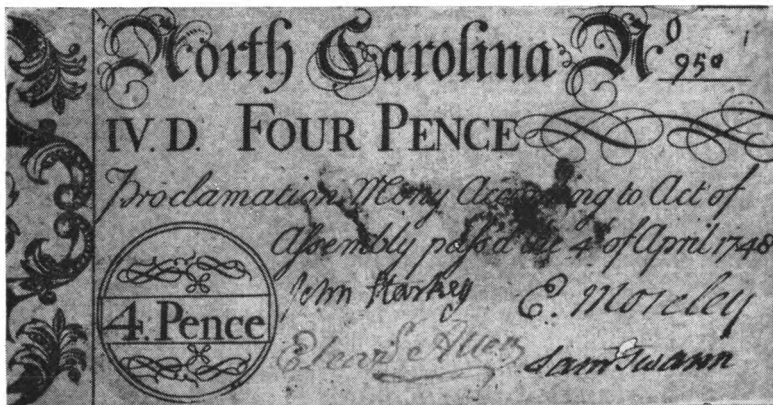 North Carolina No 950
IV. D. FOUR PENCE
Proclamation Mony According to Act of
Assembly pass'd the 4 of April 1748
4. Pence
John Starkey E. Moseley
Eleazr Allen Sam Swann